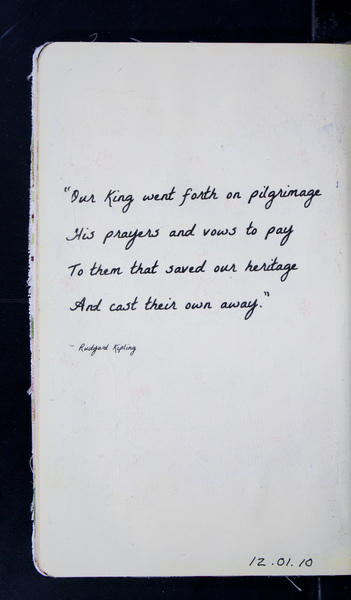 "Our King went forth on pilgrimage
His prayers and vows to pay
To them that saved our heritage
And cast their own away."
- Rudyard Kipling
12.01.10